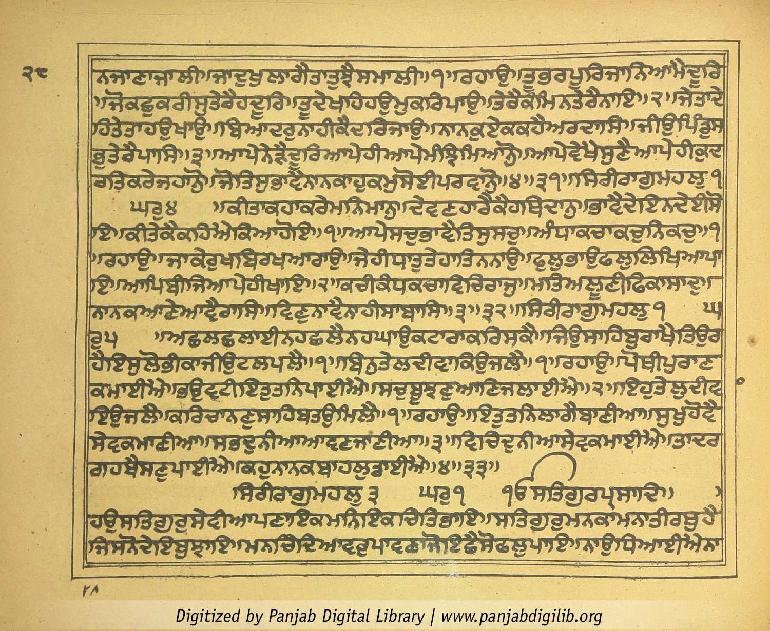 ੨੮
ਨਜਾਣਾਜਾਲੀ॥ਜਾਦੁਖੁਲਾਗੈਤਾਤੁਝੈਸਮਾਲੀ॥੧॥ਰਹਾਉ॥ਤੂਭਰਪੂਰਿਜਾਨਿਆਮੈਦੂਰਿ
॥ਜੋਕਛੁਕਰੀਸੁਤੇਰੈਹਦੂਰਿ॥ਤੂਦੇਖਹਿਹਉਮੁਕਰਿਪਾਉ॥ਤੇਰੈਕੰਮਿਨਤੇਰੈਨਾਇ॥੨॥ਜੇਤਾਦੇ
ਹਿਤੇਤਾਹਉਖਾਉ॥ਬਿਆਦਰੁਨਾਹੀਕੈਦਰਿਜਾਉ॥ਨਾਨਕੁਏਕਕਹੈਅਰਦਾਸਿ॥ਜੀਉਪਿੰਡੁਸ
ਭੁਤੇਰੈਪਾਸਿ॥੩॥ਆਪੇਨੇੜੈਦੂਰਿਆਪੇਹੀਆਪੇਮੰਝਿਮਿਆਨੋ॥ਆਪੇਵੇਖੈਸੁਣੈਆਪੇਹੀਕੁਦ
ਰਤਿਕਰੇਜਹਾਨੋ॥ਜੋਤਿਸੁਭਾਵੈਨਾਨਕਾਹੁਕਮੁਸੋਈਪਰਵਾਨੋ॥੪॥੩੧॥ਸਿਰੀਰਾਗੁਮਹਲੁ੧
ਘਰੁ੪ ॥ਕੀਤਾਕਹਾਕਰੇਮਨਿਮਾਨੁ॥ਦੇਵਣਹਾਰੈਕੈਹਥਿਦਾਨੁ॥ਭਾਵੈਦੇਇਨਦੇਈਸੋ
ਇ॥ਕੀਤੇਕੈਕਹਿਐਕਿਆਹੋਇ॥੧॥ਆਪੇਸਚੁਭਾਵੈਤਿਸੁਸਚੁ॥ਅੰਧਾਕਚਾਕਚੁਨਿਕਚੁ॥੧
॥ਰਹਾਉ॥ਜਾਕੇਰੁਖਬਿਰਖਆਰਾਉ॥ਜੇਹੀਧਾਤੁਤੇਹਾਤਿਨਨਾਉ॥ਫੁਲੁਭਾਉਫਲੁਲਿਖਿਆਪਾ
ਇ॥ਆਪਿਬੀਜਿਆਪੇਹੀਖਾਇ॥੨॥ਕਚੀਕੰਧਕਚਾਵਿਚਿਰਾਜੁ॥ਮਤਿਅਲੂਣੀਫਿਕਾਸਾਦੁ॥
ਨਾਨਕਆਣੇਆਵੈਰਾਸਿ॥ਵਿਣੁਨਾਵੈਨਾਹੀਸਾਬਾਸਿ॥੩॥੩੨॥ਸਿਰੀਰਾਗੁਮਹਲੁ੧ ਘ
ਰੁ੫ ॥ਅਛਲਛਲਾਈਨਹਛਲੈਨਹਘਾਉਕਟਾਰਾਕਰਿਸਕੈ॥ਜਿਉਸਾਹਿਬੁਰਾਖੈਤਿਉਰ
ਹੈਇਸੁਲੋਭੀਕਾਜੀਉਟਲਪਲੈ॥੧॥ਬਿਨੁਤੇਲਦੀਵਾਕਿਉਜਲੈ॥੧॥ਰਹਾਉ॥ਪੋਥੀਪੁਰਾਣ
ਕਮਾਈਐ॥ਭਉਵਟੀਇਤੁਤਨਿਪਾਈਐ॥ਸਚੁਬੂਝਣੁਆਣਿਜਲਾਈਐ॥੨॥ਇਹੁਤੇਲੁਦੀਵਾ
ਇਉਜਲੈ॥ਕਰਿਚਾਨਣੁਸਾਹਿਬਤਉਮਿਲੈ॥੧॥ਰਹਾਉ॥ਇਤੁਤਨਿਲਾਗੈਬਾਣੀਆ॥ਸੁਖੁਹੋਵੈ
ਸੇਵਕਮਾਣੀਆ॥ਸਭਦੁਨੀਆਆਵਣਜਾਣੀਆ॥੩॥ਵਿਚਿਦੁਨੀਆਸੇਵਕਮਾਈਐ॥ਤਾਦਰ
ਗਹਬੈਸਣੁਪਾਈਐ॥ਕਹੁਨਾਨਕਬਾਹਲੁਡਾਈਐ॥੪॥੩੩॥
ਸਿਰੀਰਾਗੁਮਹਲੁ੩ ਘਰੁ੧ ੴਸਤਿਗੁਰਪ੍ਰਸਾਦਿ॥
ਹਉਸਤਿਗੁਰੁਸੇਵੀਆਪਣਾਇਕਮਨਿਇਕਚਿਤਿਭਾਇ॥ਸਤਿਗੁਰੁਮਨਕਾਮਨਾਤੀਰਥੁਹੈ
ਜਿਸਨੋਦੇਇਬੁਝਾਇ॥ਮਨਚਿੰਦਿਆਵਰੁਪਾਵਣਾਜੋਇਛੈਸੋਫਲੁਪਾਇ॥ਨਾਉਧਿਆਈਐਨਾ
Digitized by Panjab Digital Library | www.panjabdigilib.org